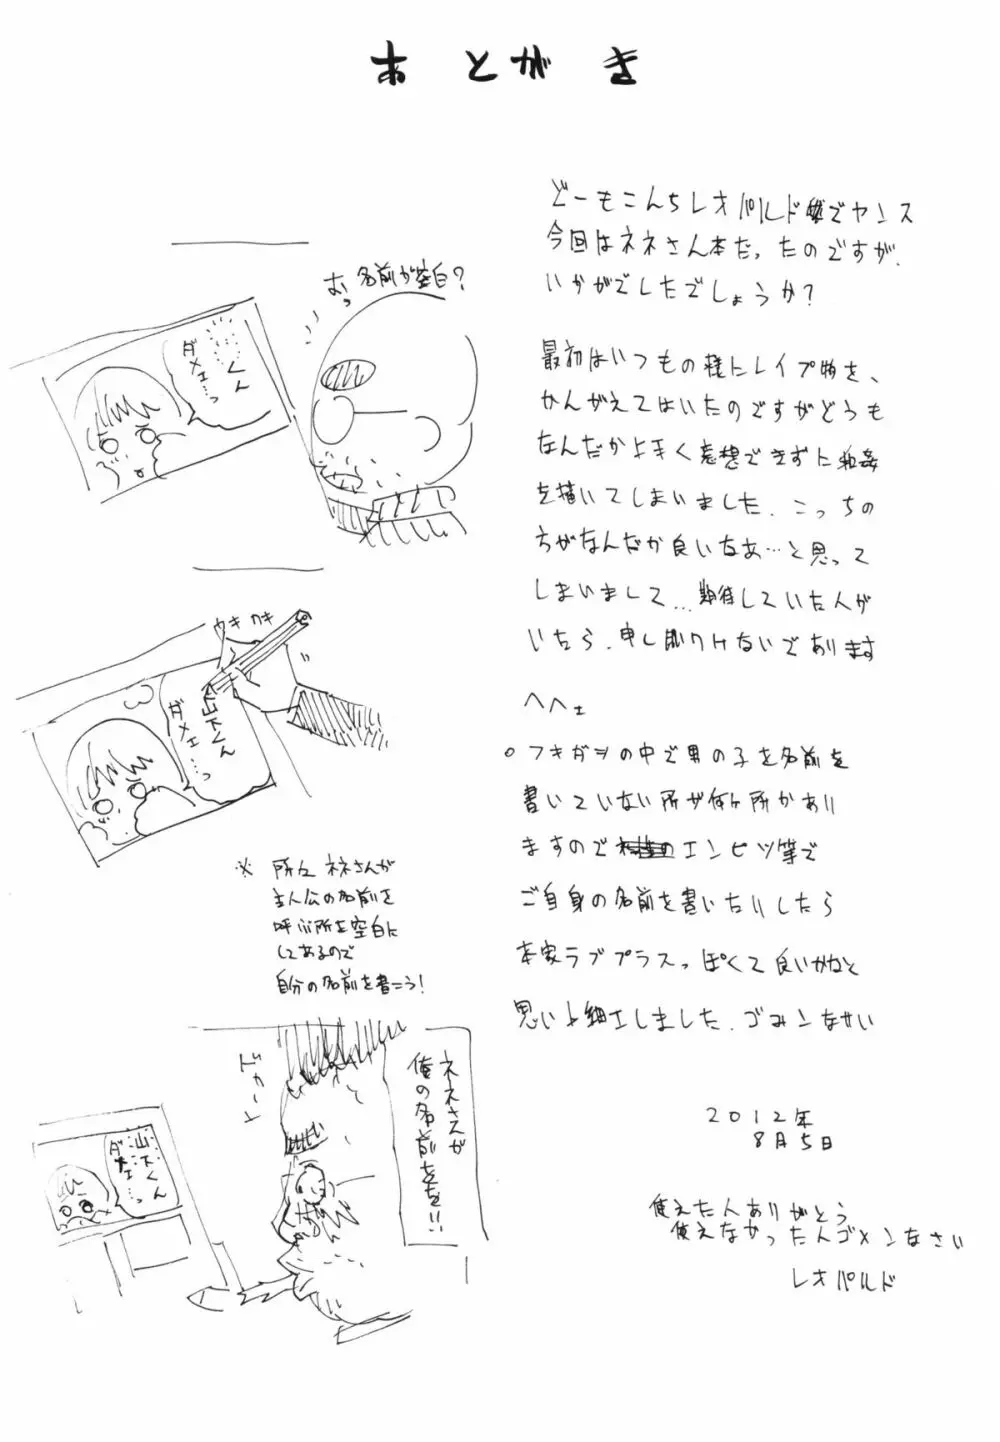 あとがき
どーもこんちレオパルドでヤンス
今回はネネさん本だったのですが、
いかがでしたでしょうか?
最初はいつもの様にレイプ物を、
かんがえてはいたのですがどうも
なんだかよき妄想できずに和姦
を描いてしまいました、こっちの
方がなんだか良いなあ…と思って
しまいまして…期待していた人が
いたら、申し訳ないであります
ヘヘェ
○フキダシの中で男の子を名前を
書いていない所が何ヶ所かあり
ますのでエンピツ等で
ご自身の名前を書いたりしたら
本家ラブプラスっぽくて良いかなと
思いよ細工しました、ゴメンなさい
2012年
8月5日
使えた人ありがとう
使えなかった人ゴメンなさい
レオパルド
むっ 名前が空白?
くん
ダメェ…っ
カキ カキ
山下くん
ダメェ…っ
※ 所々ネネさんが
主人公の名前を
呼ぶ所を空白に
してあるので
自分の名前を書こう!
ネネさんが
俺の名前をを!!
ドカーン
山下くん
ダメェ…っ